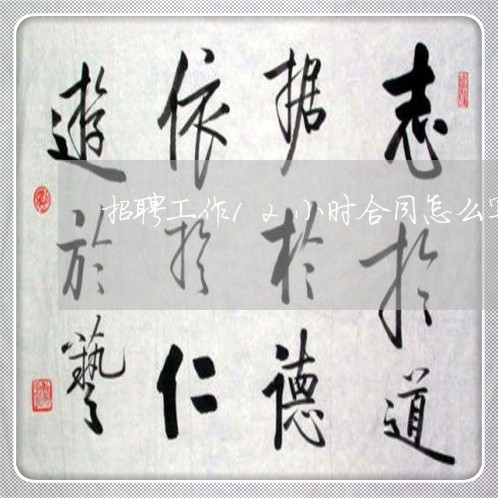 志扵道
据扵德
依扵仁
遊於藝
招聘工作12小时合同怎么